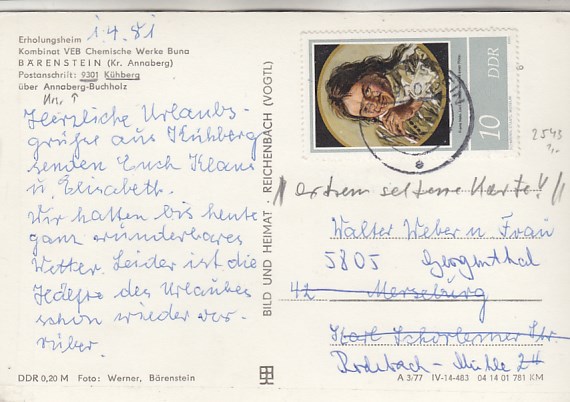 1.4.81
Erholungsheim
Kombinat VEB Chemische Werke Buna
BÄRENSTEIN (Kr. Annaberg)
Postanschrift: 9301 Kühberg
über Annaberg-Buchholz
Herzliche Urlaubs-
grüße aus Kühberg
senden Euch Klaus
u. Elisabeth.
Wir hatten bis heute
ganz wunderbares
Wetter. Leider ist die
Hälfte des Urlaubes
schon wieder vor-
rüber.
DDR 0,20 M Foto: Werner, Bärenstein
BILD UND HEIMAT · REICHENBACH (VOGTL)
DDR
10
2543
extrem seltene Karte!
Walter Weber u. Frau
5805 Georgenthal
42 Merseburg
Karl Schorlemer Str
Rodebach-Mühle 24
A 3/77 IV-14-483 04 14 01 781 KM